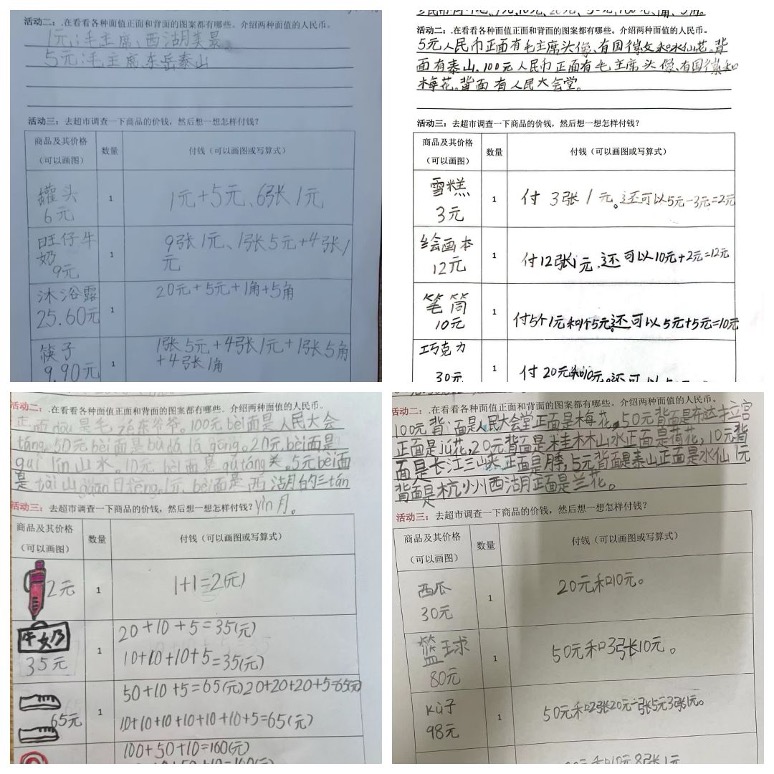 活动二：.在看看各种面值正面和背面的图案都有哪些。介绍两种面值的人民币。
1元：毛主席、西湖美景
5元：毛主席、东岳泰山
活动三：去超市调查一下商品的价钱，然后想一想怎样付钱？
商品及其价格（可以画图） 数量 付钱（可以画图或写算式）
罐头 6元 1 1元+5元、6张1元
旺仔牛奶 9元 1 9张1元、1张5元+4张1元
沐浴露 25.60元 1 20元+5元+1角+5角
筷子 9.90元 1 1张5元+4张1元+1张5角+4张1角
活动二：.在看看各种面值正面和背面的图案都有哪些。介绍两种面值的人民币。
5元人民币正面有毛主席头像,有国徽
和水仙花。背
面有泰山。100元人民币正面有毛主席头像、有国徽和
梅花。背面有人民大会堂。
活动三：去超市调查一下商品的价钱，然后想一想怎样付钱？
商品及其价格（可以画图） 数量 付钱（可以画图或写算式）
雪糕 3元 1 付3张1元。还可以5元-3元=2元
绘画本 12元 1 付12张1元。还可以10元+2元=12元
笔筒 10元 1 付5个1元和1个5元还可以5元+5元=10元
巧克力 30元 1 付20元和10元。
活动二：.在看看各种面值正面和背面的图案都有哪些。介绍两种面值的人民币。
100元bèi面是人民大会
táng。50元bèi面是bù dá lā gōng。20元bèi面是
guì lín山水。10元bèi面是qú táng关。5元bèi面
是tài山
1元bèi面是西湖的三tán
yìn月。
活动三：去超市调查一下商品的价钱，然后想一想怎样付钱？
商品及其价格（可以画图） 数量 付钱（可以画图或写算式）
2元 1 1+1=2(元)
牛奶 35元 1 20+10+5=35(元)
10+10+10+5=35(元)
65元 1 50+10+5=65(元) 20+20+20+5=65(元)
10+10+10+10+10+10+5=65(元)
100+50+10=160(元)
活动二：.在看看各种面值正面和背面的图案都有哪些。介绍两种面值的人民币。
100元背面是人民大会堂正面是梅花。50元背面是布达拉宫
正面是jú花。20元背面是桂林山水正面是荷花。10元背
面是长江三峡。正面是
5元背面是泰山正面是水仙1元
背面是杭州西湖正面是兰花。
活动三：去超市调查一下商品的价钱，然后想一想怎样付钱？
商品及其价格（可以画图） 数量 付钱（可以画图或写算式）
西瓜 30元 1 20元和10元。
篮球 80元 1 50元和3张10元。
kù子 98元 1 50元和2张20元一张5元3张1元。